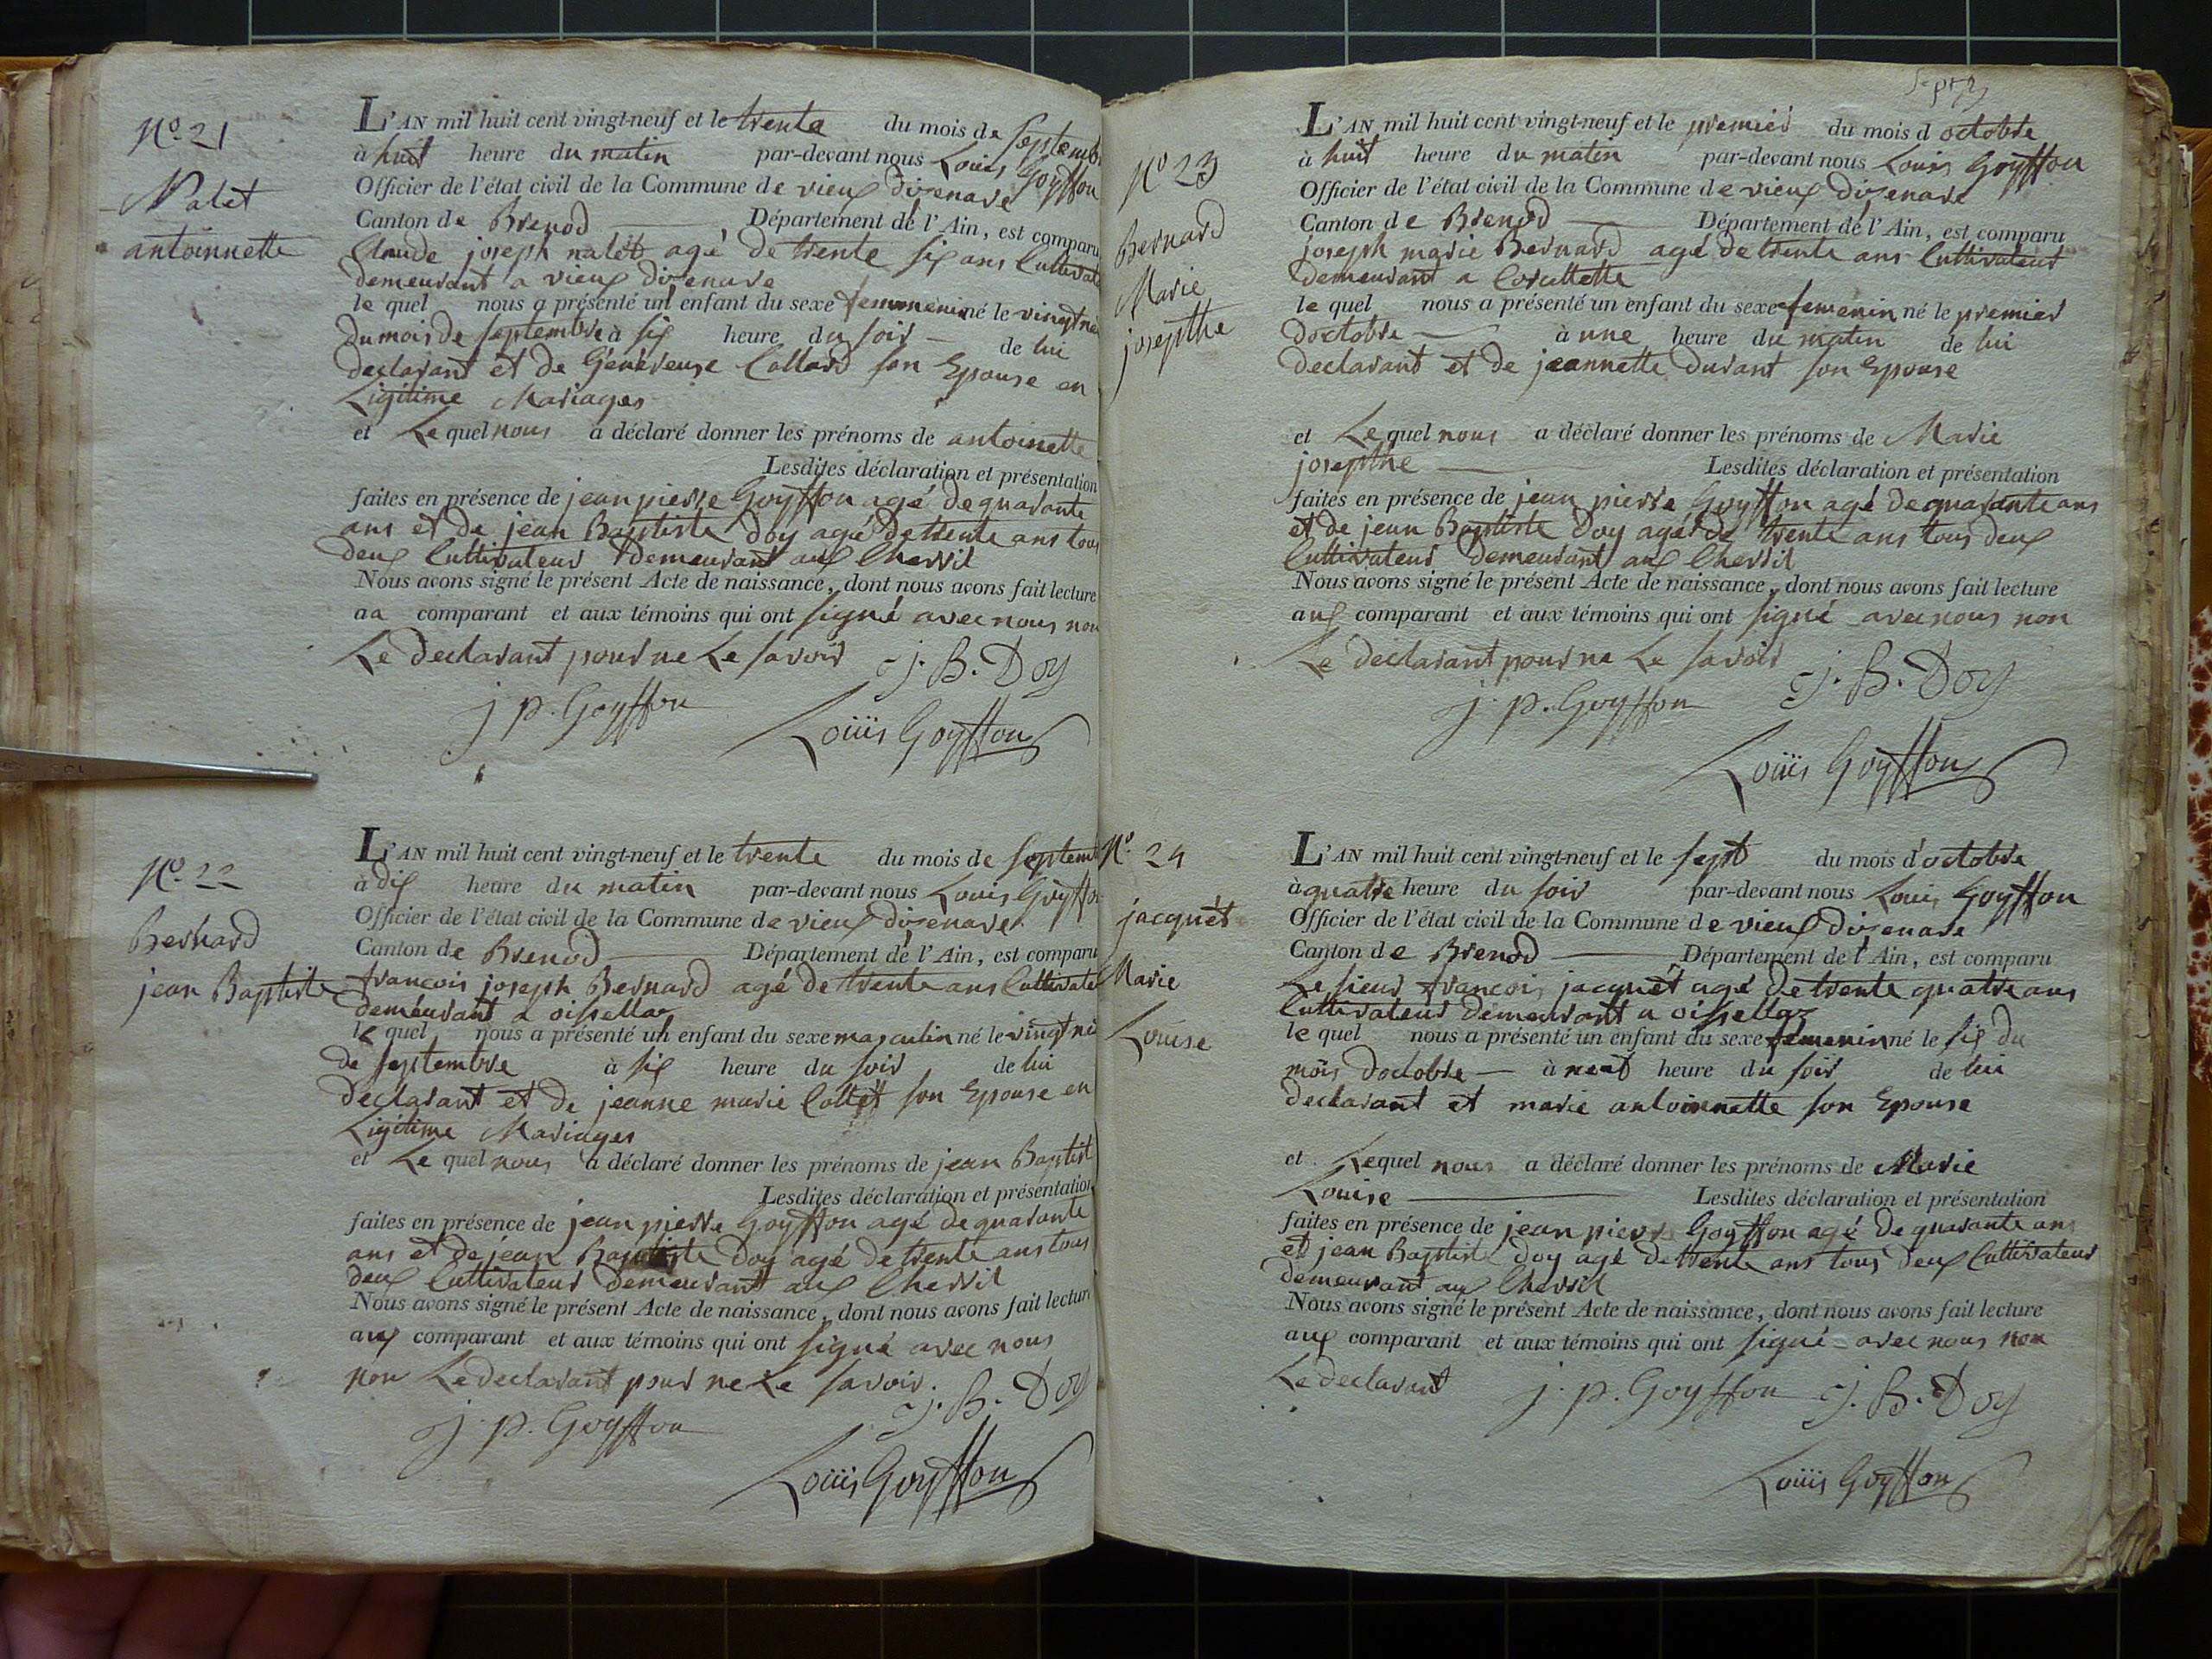 N.o 21
Nalet
antoinnette
L'AN mil huit cent vingt-neuf et le trente du mois de Septemb
à huit heure du matin par-devant nous Louis Goyffon
Officier de l'état civil de la Commune de vieux disenave
Canton de Brenod Département de l'Ain, est comparu
Claude joseph nalét agé de trente six ans Cultivate
demeurant a vieux disenave
le quel nous a présenté un enfant du sexe femmenin né le vingt neu
du mois de septembre à six heure du soir de lui
declarant et de Généreuse Collard son Epouse en
Ligitime Mariages
et Le quel nous a déclaré donner les prénoms de antoinette
Lesdites déclaration et présentation
faites en présence de jean pierre Goyffon agé de quarante
ans et de jean Baptiste Doy agé de trente ans tous
deux Cultivateur demeurant aux Chevril
Nous avons signé le présent Acte de naissance, dont nous avons fait lecture
au comparant et aux témoins qui ont signé avec nous non
Le declarant pour ne Le savoir J. B. Doy
j p. Goyffon
Louis Goyffon
N.o 22
Bernard
jean Baptiste
L'AN mil huit cent vingt-neuf et le trente du mois de Septem
à dix heure du matin par-devant nous Louis Goyffon
Officier de l'état civil de la Commune de vieux disenave
Canton de Brenod Département de l'Ain, est comparu
francois joseph Bernard agé de trente ans Cultivate
demeurant a oissellaz
le quel nous a présenté un enfant du sexe masculin né le vingt neu
de septembre à six heure du soir de lui
declarant et de jeanne marie Collet son Epouse en
Ligitime Mariages
et Le quel nous a déclaré donner les prénoms de jean Baptist
Lesdites déclaration et présentation
faites en présence de jean pierre Goyffon agé de quarante
ans et de jean Baptiste Doy agé de trente ans tous
deux Cultivateur demeurant aux Chevril
Nous avons signé le présent Acte de naissance, dont nous avons fait lecture
aux comparant et aux témoins qui ont signé avec nous
non Le declarant pour ne Le savoir. J. B. Doy
J. p. Goyffon
Louis Goyffon
Sept
N.o 23
Bernard
Marie
josepthe
L'AN mil huit cent vingt-neuf et le premier du mois d octobre
à huit heure du matin par-devant nous Louis Goyffon
Officier de l'état civil de la Commune de vieux disenave
Canton de Brenod Département de l'Ain, est comparu
joseph marie Bernard agé de trente ans Cultivateur
demeurant a Corcellette
le quel nous a présenté un enfant du sexe femenin né le premier
doctobre à une heure du matin de lui
declarant et de jeannette Durant son Epouse
et Le quel nous a déclaré donner les prénoms de Marie
josepthe Lesdites déclaration et présentation
faites en présence de jean pierre Goyffon agé de quarante ans
et de jean Baptiste Doy agé de trente ans tous deux
Cultivateur demeurant aux Chevril
Nous avons signé le présent Acte de naissance, dont nous avons fait lecture
aux comparant et aux témoins qui ont signé avec nous non
Le declarant pour ne Le savoir J. B. Doy
j. p. Goyffon
Louis Goyffon
N.o 24
jacquét
Marie
Louise
L'AN mil huit cent vingt-neuf et le sept du mois d'octobre
à quatre heure du soir par-devant nous Louis Goyffon
Officier de l'état civil de la Commune de vieux disenave
Canton de Brenod Département de l'Ain, est comparu
Le sieur francois jacquét agé de trente quatre ans
Cultivateur demeurant a oissellaz
le quel nous a présenté un enfant du sexe femenin né le six du
mois doctobre à neuf heure du soir de lui
declarant et marie antoinnette son Epouse
et Lequel nous a déclaré donner les prénoms de Marie
Louise Lesdites déclaration et présentation
faites en présence de jean pierre Goyffon agé de quarante ans
et jean Baptiste Doy agé de trente ans tous deux Cultivateur
demeurant aux Chevril
Nous avons signé le présent Acte de naissance, dont nous avons fait lecture
aux comparant et aux témoins qui ont signé avec nous non
Le declarant j. p. Goyffon J. B. Doy
Louis Goyffon